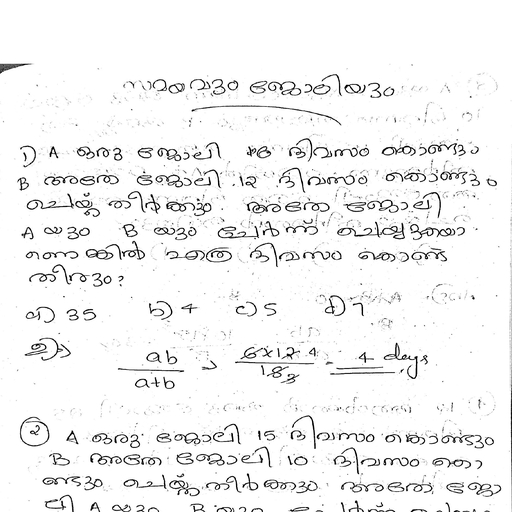 സമയവും ജോലിയും
1) A ഒരു ജോലി 6 ദിവസം കൊണ്ടും
B അതേ ജോലി 12 ദിവസം കൊണ്ടും
ചെയ്ത് തീർക്കും. അതേ ജോലി
A യും B യും ചേർന്ന് ചെയ്യുകയാ
ണെങ്കിൽ എത്ര ദിവസം കൊണ്ട്
തീരും?
a) 35 b) 4 c) 5 d) 7
ab/a+b = 6x12 4/18 3 = 4 days
2 A ഒരു ജോലി 15 ദിവസം കൊണ്ടും
B അതേ ജോലി 10 ദിവസം കൊ
ണ്ടും ചെയ്ത് തീർക്കും അതേ ജോ
ലി A യും B യും